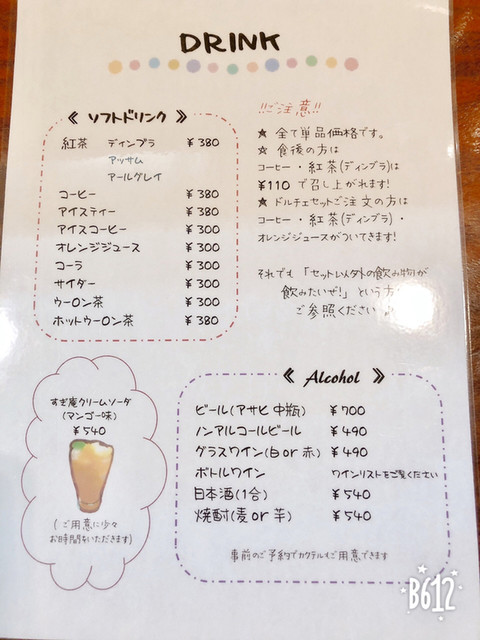 DRINK
《 ソフトドリンク 》
紅茶 ディンブラ ¥380
アッサム
アールグレイ
コーヒー ¥380
アイスティー ¥380
アイスコーヒー ¥300
オレンジジュース ¥300
コーラ ¥300
サイダー ¥300
ウーロン茶 ¥300
ホットウーロン茶 ¥380
!!ご注意!!
★ 全て単品価格です。
★ 食後の方は
コーヒー・紅茶(ディンブラ)は
¥110 で召し上がれます!
★ ドルチェセットご注文の方は
コーヒー・紅茶(ディンブラ)・
オレンジジュースがついてきます!
それでも「セット以外の飲み物が
飲みたいぜ!」という方
ご参照ください
すぎ庵クリームソーダ
(マンゴー味)
¥540
(ご用意に少々
お時間をいただきます)
《 Alcohol 》
ビール(アサヒ 中瓶) ¥700
ノンアルコールビール ¥490
グラスワイン(白or赤) ¥490
ボトルワイン ワインリストをご覧ください
日本酒(1合) ¥540
焼酎(麦or芋) ¥540
事前のご予約でカクテルもご用意できます
B612